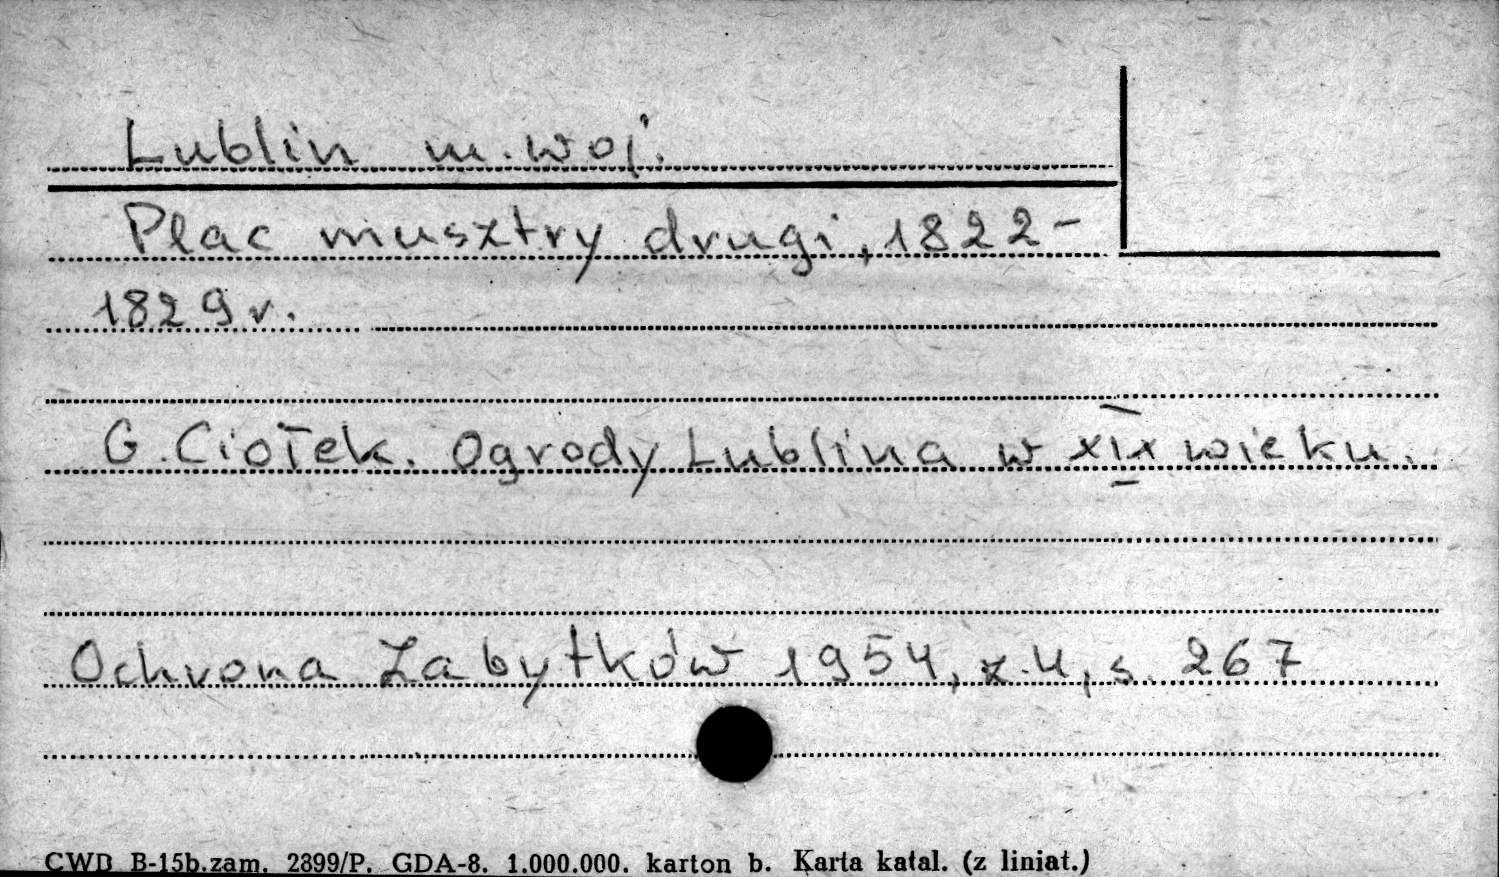 Lublin m. woj.
Plac musztry drugi, 1822-
1829 r.
G. Ciołek. Ogrody Lublina w XIX wieku.
Ochrona Zabytków 1954, z. 4, s. 267
CWD B-15b.zam. 2399/P. GDA-8. 1.000.000. karton b. Karta katal. (z liniat.)